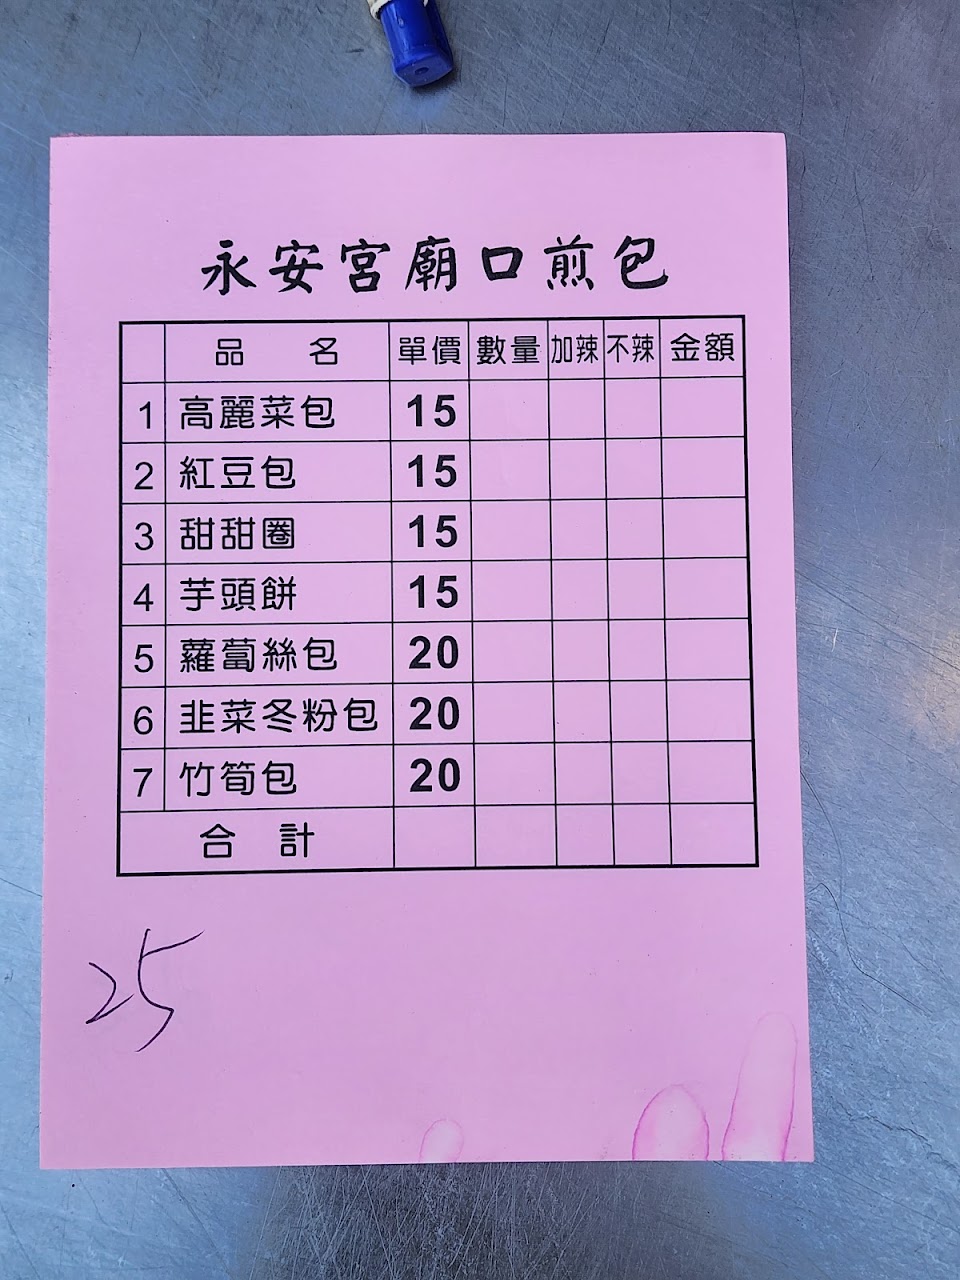 永安宮廟口煎包
品 名 單價 數量 加辣 不辣 金額
1 高麗菜包 15
2 紅豆包 15
3 甜甜圈 15
4 芋頭餅 15
5 蘿蔔絲包 20
6 韭菜冬粉包 20
7 竹筍包 20
合 計
25